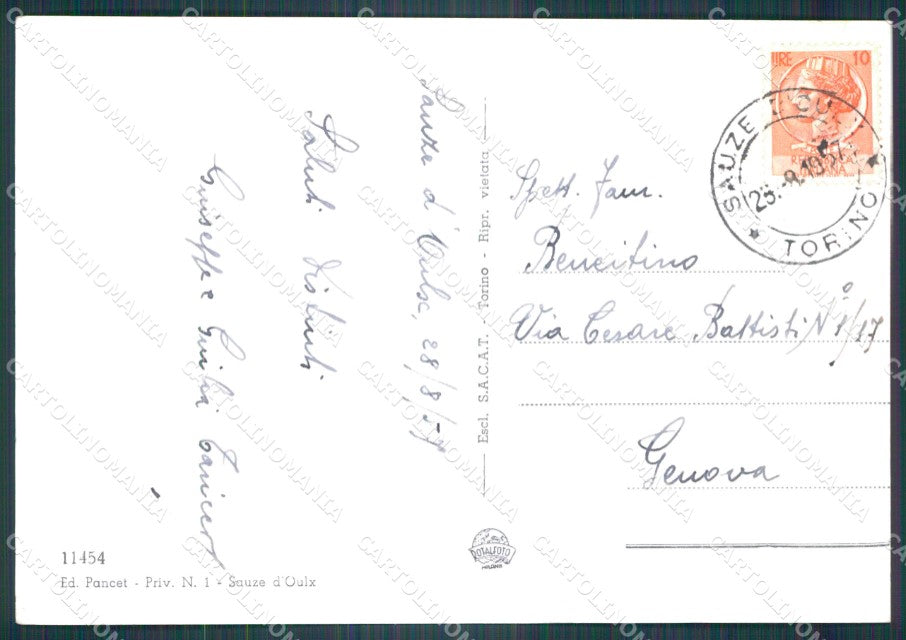 Sauze d'Oulx, 28/8/57
Saluti distinti
Giuseppe e Giulia
Escl. S.A.C.A.T. - Torino - Ripr. vietata
LIRE 10
SAUZE D'OULX
TORINO
Spett. Fam.
Bencitino
Via Cesare Battisti N° 1/17
Genova
11454
Ed. Pancet - Priv. N. 1 - Sauze d'Oulx
ROTALFOTO
MILANO
CARTOLINOMANIA